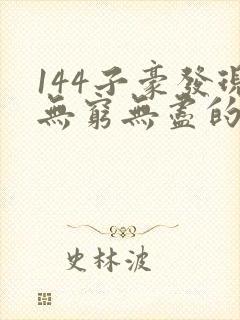 144子豪發現
無窮無盡的
史林波